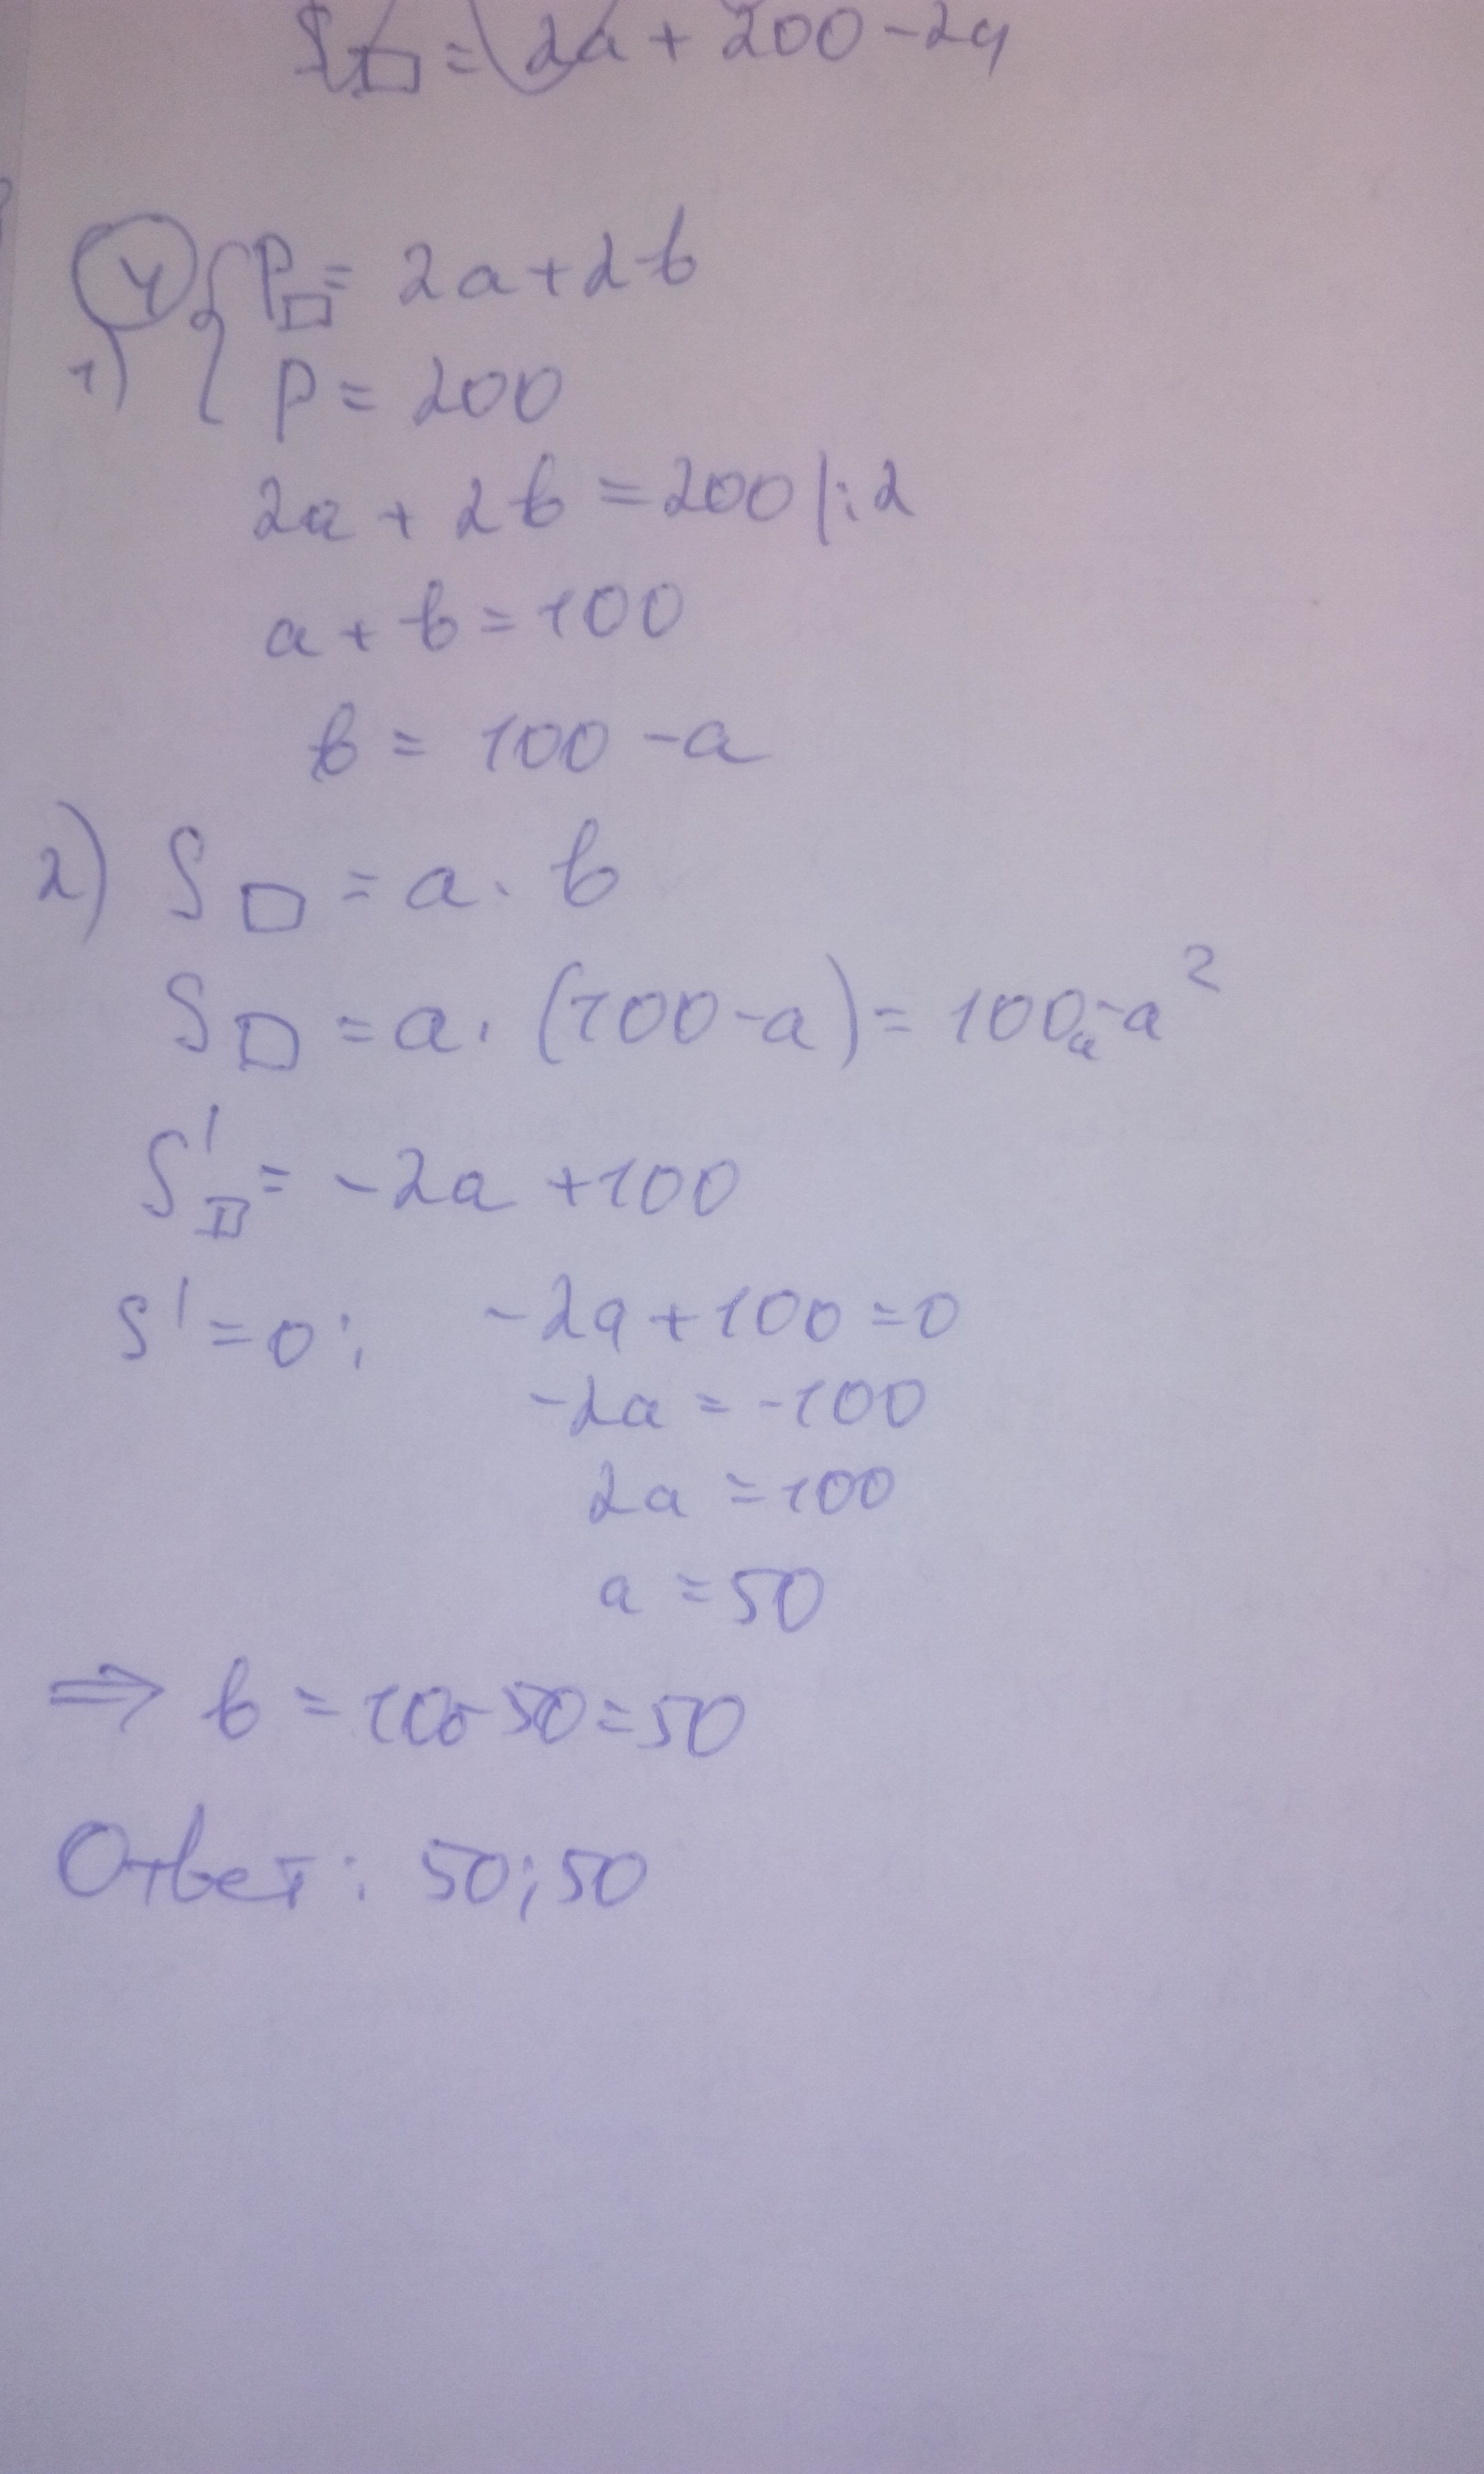 S□ = 2a + 200 - 2a
④ { P□ = 2a + 2b
1) P = 200
2a + 2b = 200 |:2
a + b = 100
b = 100 - a
2) S□ = a · b
S□ = a · (100 - a) = 100a - a²
S'□ = -2a + 100
S' = 0 ; -2a + 100 = 0
-2a = -100
2a = 100
a = 50
⇒ b = 100 - 50 = 50
Ответ: 50; 50